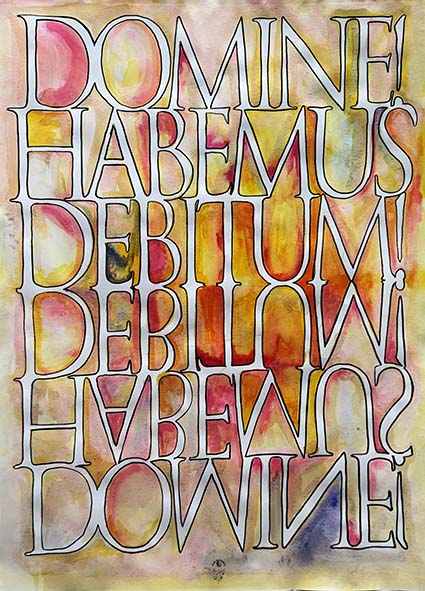 DOMINE!
HABEMUS
DEBITUM!
DEBITUM!
HABEMUS
DOMINE!